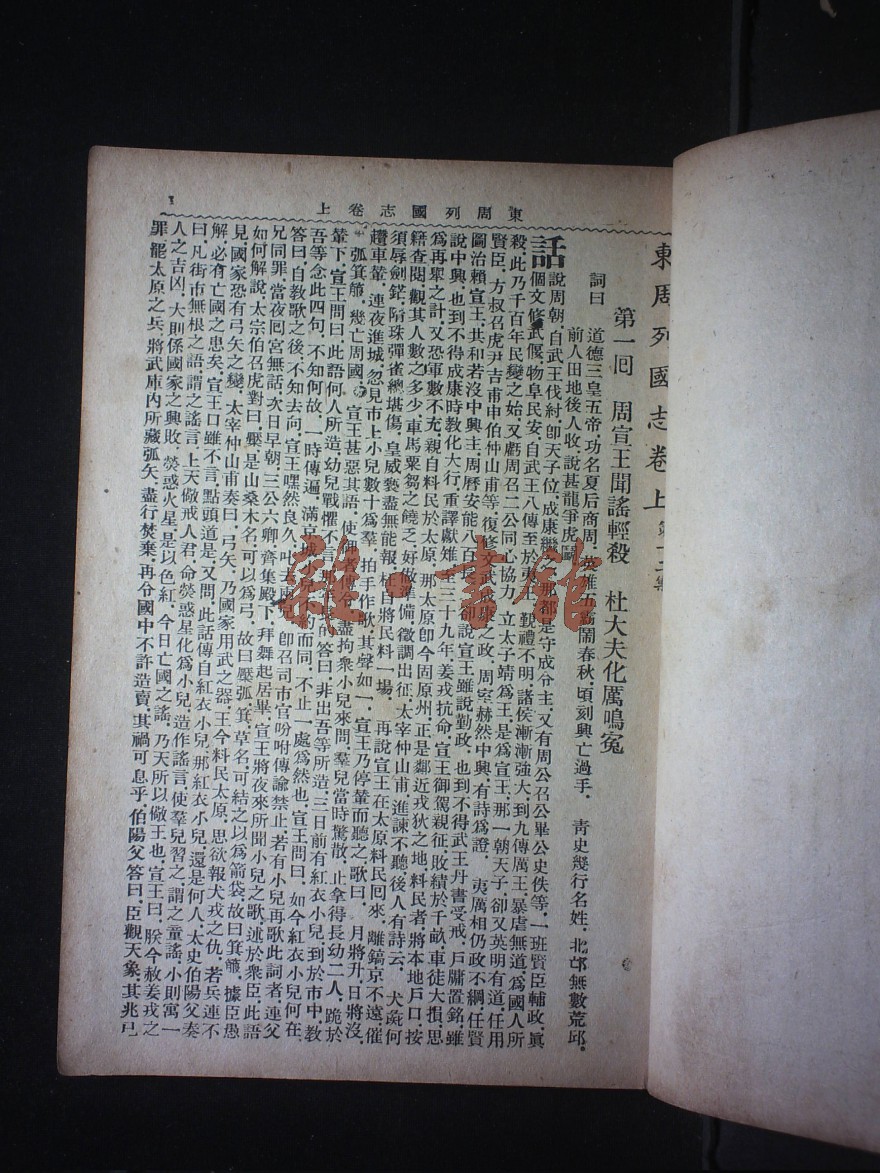 東周列國志卷上
1
東周列國志卷上
第一回 周宣王聞謠輕殺 杜大夫化厲鳴冤
詞曰 道德三皇五帝，功名夏后商周，英雄五霸鬧春秋，頃刻興亡過手． 青史幾行名姓，北邙無數荒邱．
前人田地後人收，說甚龍爭虎鬬．
話說周朝，自武王伐紂，卽天子位，成康繼之，那都是守成令主，又有周公召公畢公史佚等，一班賢臣輔政，眞
個文修武偃，物阜民安，自武王八傳至於夷王，覲禮不明，諸侯漸漸強大，到九傳厲王，暴虐無道，爲國人所
殺，此乃千百年民變之始，又虧周召二公同心協力，立太子靖爲王，是爲宣王，那一朝天子，卻又英明有道，任用
賢臣，方叔召虎尹吉甫申伯仲山甫等，復修文武成康之政，周室赫然中興，有詩爲證， 夷厲相仍政不綱，任賢
圖治賴宣王，共和若沒中興主，周歷安能八百 卻說宣王雖說勤政，也到不得武王丹書受戒，戶牖置銘，雖
說中興，也到不得成康時教化大行，重譯獻雉，至三十九年，姜戎抗命，宣王御駕親征，敗績於千畝，車徒大損，思
爲再舉之計，又恐軍數不充，親自料民於太原，那太原卽今固原州，正是鄰近戎狄之地，料民者，將本地戶口，按
籍查閱，觀其人數之多少，車馬粟芻之饒乏，好做準備，徵調出征，太宰仲山甫進諫不聽，後人有詩云， 犬彘何
須辱劍鋩，隋珠彈雀總堪傷，皇威褻盡無能報，枉自將民料一場， 再說宣王在太原料民囘來，離鎬京不遠，催
趲車輦，連夜進城，忽見市上小兒數十爲羣，拍手作歌，其聲如一，宣王乃停輦而聽之，歌曰， 月將升，日將沒，
弧箕箙，幾亡周國， 宣王甚惡其語，使御者傳令，盡拘衆小兒來問，羣兒當時驚散，止拿得長幼二人，跪於
輦下，宣王問曰，此語何人所造，幼兒戰懼不言，那年長的答曰，非出吾等所造，三日前有紅衣小兒，到於市中，教
吾等念此四句，不知何故，一時傳遍，滿京城小兒不約而同，不止一處爲然也，宣王問曰，如今紅衣小兒何在，
答曰，自教歌之後，不知去向，宣王嘿然良久，叱去兩兒，卽召司市官吩咐傳諭禁止，若有小兒再歌此詞者，連父
兄同罪，當夜囘宮無話，次日早朝，三公六卿，齊集殿下，拜舞起居畢，宣王將夜來所聞小兒之歌，述於衆臣，此語
如何解說，太宗伯召虎對曰，檿是山桑木名，可以爲弓，故曰檿弧，箕，草名，可結之以爲箭袋，故曰箕箙，據臣愚
見，國家恐有弓矢之變，太宰仲山甫奏曰，弓矢，乃國家用武之器，王今料民太原，思欲報犬戎之仇，若兵連不
解，必有亡國之患矣，宣王口雖不言，點頭道是，又問，此話傳自紅衣小兒，那紅衣小兒，還是何人，太史伯陽父奏
曰，凡街市無根之語，謂之謠言，上天儆戒人君，命熒惑星化爲小兒，造作謠言，使羣兒習之，謂之童謠，小則寓一
人之吉凶，大則係國家之興敗，熒惑火星，是以色紅，今日亡國之謠，乃天所以儆王也，宣王曰，朕今赦姜戎之
罪，罷太原之兵，將武庫內所藏弧矢，盡行焚棄，再令國中不許造賣，其禍可息乎，伯陽父答曰，臣觀天象，其兆已
雜·書館